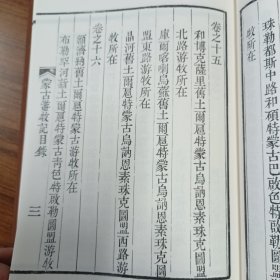 珠勒都斯中路和碩特蒙古巴啟色特啟勒
牧所在
卷之十五
和博克薩里舊土爾扈特蒙古烏訥恩素珠克圖盟
北路游牧所在
庫爾喀喇烏蘇舊土爾扈特蒙古烏訥恩素珠克圖
盟東路游牧所在
晶河舊土爾扈特蒙古烏訥恩素珠克圖盟西路游
牧所在
卷之十六
額濟納舊土爾扈特蒙古游牧所在
布勒罕河新土爾扈特蒙古青色特啟勒圖盟游牧
蒙古游牧記目錄
三